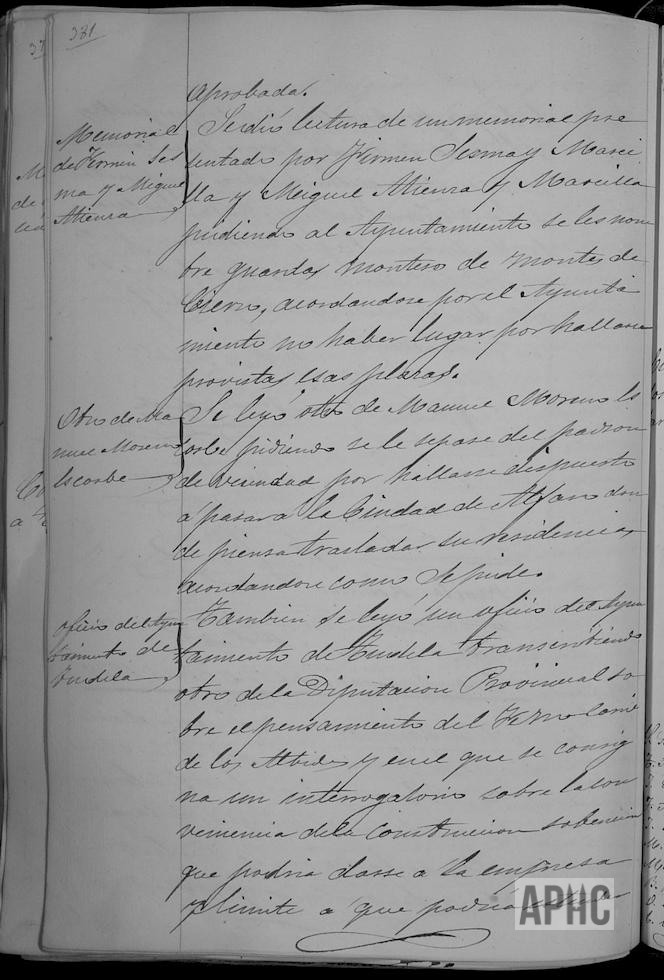 381
37
aprobada.
Memorial
de Fermin Ses
ma y Miguel
Atienza
Se dió lectura de un memorial pre
sentado por Fermin Sesma y Marci
lla y Miguel Atienza y Marcilla
pidiendo al Ayuntamiento se les nom
bre guardas montero de montes de
Cierzo, acordandose por el Ayunta
miento no haber lugar por hallarse
provistas esas plazas.
Otro de Ma
nuel Moreno
Escorbe
Se leyó otro de Manuel Moreno Es
corbe pidiendo se le repase del padron
de vecindad por hallarse dispuesto
a pasar a la Ciudad de Alfaro don
de piensa trasladar su residencia,
acordandose como se pide.
Oficio del Ayun
tamiento de
Tudela
Tambien se leyó un oficio del Ayun
tamiento de Tudela transcribiendo
otro de la Diputacion Provincial so
bre el pensamiento del Ferro Carril
de los Alduides y en el que se consig
na un interrogatorio sobre la con
veniencia de la construccion subencion
que podria darse a la empresa
y limite a que podria
APHC